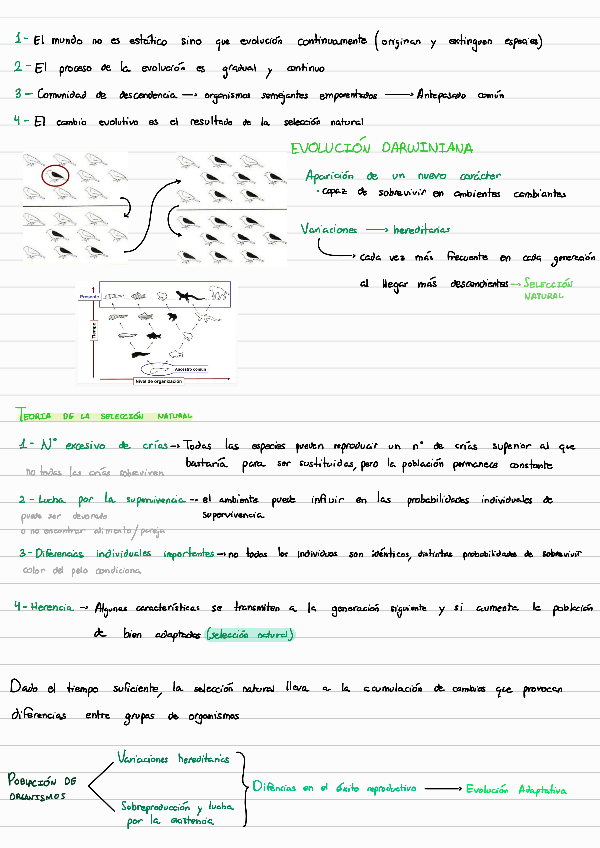 1- El mundo no es estático sino que evolución continuamente (originan y extinguen especies)
2- El proceso de la evolución es gradual y continuo
3- Comunidad de descendencia → organismos semejantes emparentados → Antepasado común
4- El cambio evolutivo es el resultado de la selección natural
EVOLUCIÓN DARWINIANA
Aparición de un nuevo carácter
· capaz de sobrevivir en ambientes cambiantes
Variaciones → hereditarias
→ cada vez más frecuente en cada generación
al llegar más descendientes → SELECCIÓN
NATURAL
Presente
Tiempo
Ancestro común
Nivel de organización
TEORIA DE LA SELECCIÓN NATURAL
1- Nº excesivo de crías → Todas las especies pueven reproducir un nº de crías superior al que
bastaría para ser sustituidas, pero la población permanece constante
no todas las crías sobreviven
2- Lucha por la supervivencia → el ambiente puede influir en las probabilidades individuales de
supervivencia
puede ser devorado
o no encontrar alimento/pareja
3- Diferencias individuales importantes → no todos los individuos son idénticos, distintas probabilidades de sobrevivir
color del pelo condiciona
4- Herencia → Algunas características se transmiten a la generación siguiente y si aumenta la población
de bien adaptados (selección natural)
Dado el tiempo suficiente, la selección natural lleva a la acumulación de cambios que provocan
diferencias entre grupos de organismos
POBLACIÓN DE
ORGANISMOS
Variaciones hereditarias
Sobreproducción y lucha
por la existencia
Difencias en el éxito reproductivo → Evolución Adaptativa